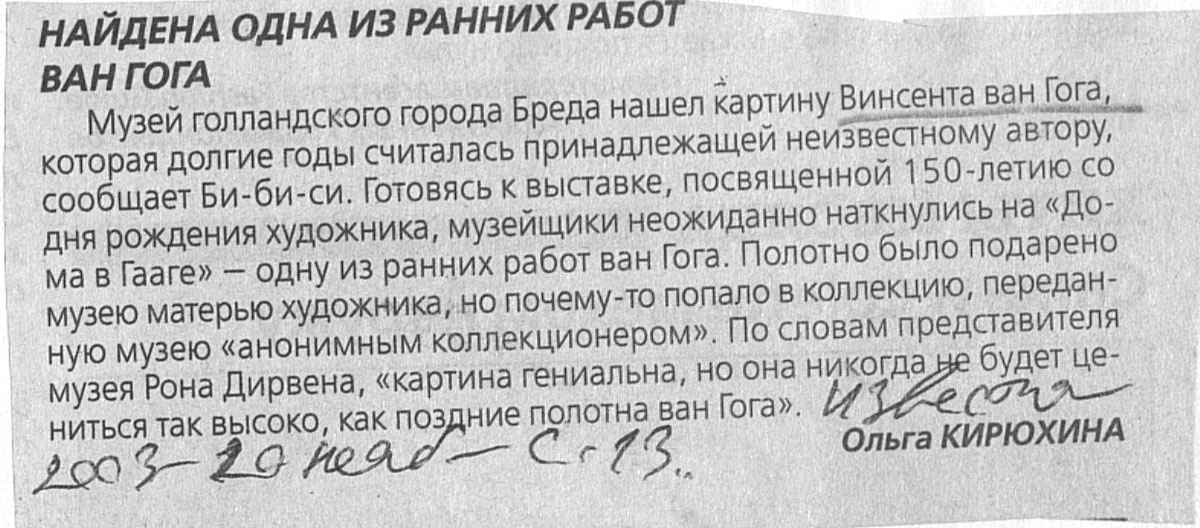 НАЙДЕНА ОДНА ИЗ РАННИХ РАБОТ
ВАН ГОГА
Музей голландского города Бреда нашел картину Винсента ван Гога,
которая долгие годы считалась принадлежащей неизвестному автору,
сообщает Би-би-си. Готовясь к выставке, посвященной 150-летию со
дня рождения художника, музейщики неожиданно наткнулись на «До-
ма в Гааге» – одну из ранних работ ван Гога. Полотно было подарено
музею матерью художника, но почему-то попало в коллекцию, передан-
ную музею «анонимным коллекционером». По словам представителя
музея Рона Дирвена, «картина гениальна, но она никогда не будет це-
ниться так высоко, как поздние полотна ван Гога».
Известия
Ольга КИРЮХИНА
2003 – 20 нояб – С. 13.